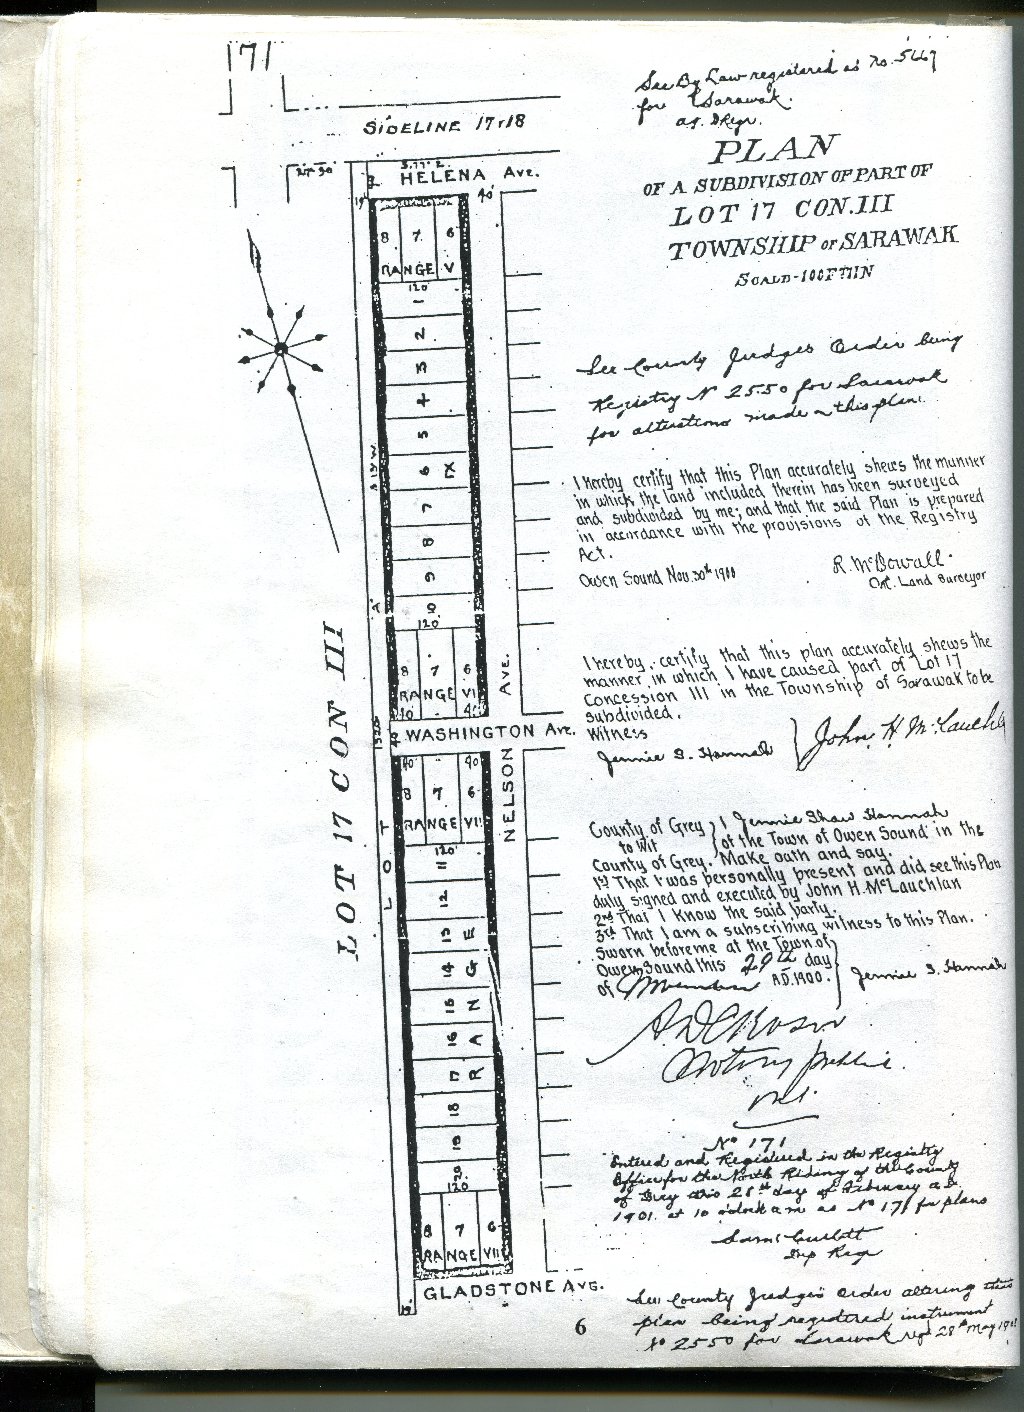 171
SIDELINE 17 & 18
HELENA AVE.
40'
8 7 6
RANGE V
120
1
2
3
4
5
6 IX
7
8
9
10
120'
8 7 6
RANGE VI
WASHINGTON AVE.
40' 40'
8 7 6
RANGE VII
120'
11
12
13
14
15
16
17
18
19
20
RANGE
120
8 7 6
RANGE VIII
GLADSTONE AVE.
NELSON AVE.
LOT A
LOT 17 CON III
See By Law registered as No. 5447
for Sarawak.
PLAN
OF A SUBDIVISION OF PART OF
LOT 17 CON. III
TOWNSHIP OF SARAWAK
SCALE-100FT 1IN
See County Judge's Order being
Registry No 2550 for Sarawak
for alterations made on this plan.
I hereby certify that this Plan accurately shews the manner
in which the land included therein has been surveyed
and subdivided by me; and that the said Plan is prepared
in accordance with the provisions of the Registry
Act.
Owen Sound Nov. 30th 1900
R. McDowall.
Ont. Land Surveyor
I hereby certify that this plan accurately shews the
manner in which I have caused part of Lot 17
Concession III in the Township of Sarawak to be
subdivided.
Witness
Jennie S. Hannah John H McLauchl
County of Grey } I Jennie Shaw Hannah
to Wit } of the Town of Owen Sound in the
County of Grey. Make oath and say.
1st That I was personally present and did see this Plan
duly signed and executed by John H. McLauchlan
2nd That I know the said party.
3rd That I am a subscribing witness to this Plan.
Sworn before me at the Town of
Owen Sound this 29th day
of November A.D. 1900. Jennie S. Hannah
Notary Public
No 171
Entered and Registered in the Registry
Office for the North Riding of the County
of Grey this 28th day of February A.D.
1901 at 10 o'clock a.m. as No 171 for plans
Dep Reg
See County Judge's Order altering this
plan being registered instrument
No 2550 for Sarawak regd 28th May
6